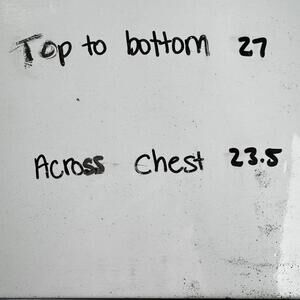 Top to bottom 27
Across Chest 23.5